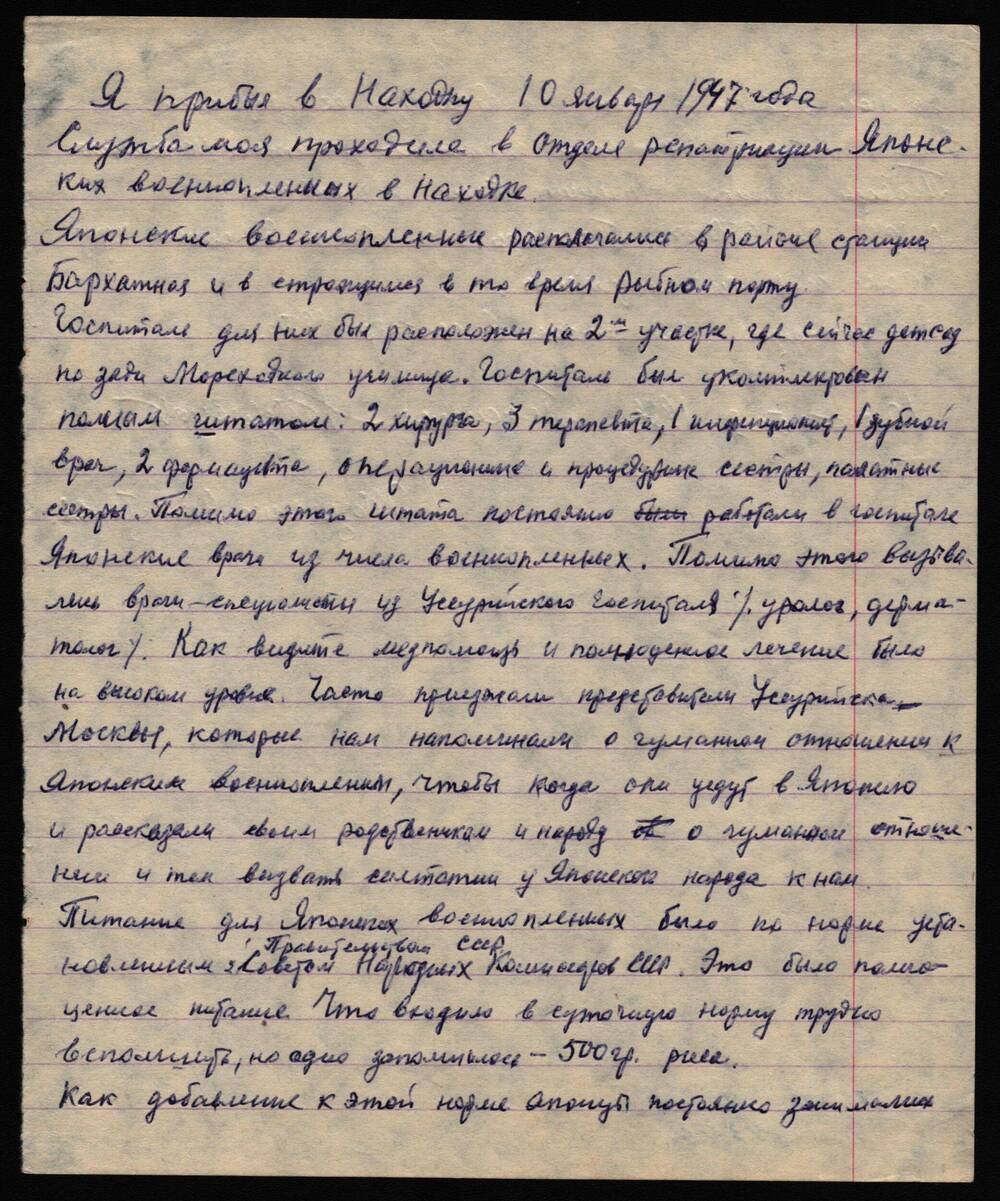 Я прибыл в Находку 10 января 1947 года
Служба моя проходила в отделе репатриации Японс-
ких военнопленных в Находке.
Японские военнопленные располагались в районе станции
Бархатная и в строящимся в то время рыбном порту.
Госпиталь для них был расположен на 2м участке, где сейчас детсад
по зади Мореходного училища. Госпиталь был укомплектован
полным штатом: 2 хирурга, 3 терапевта, 1 инфекционист, 1 зубной
врач, 2 фармацевта, операционные и процедурные сестры, палатные
сестры. Помимо этого штата постоянно были работали в госпитале
Японские врачи из числа военнопленных. Помимо этого вызыва-
лись врачи-специалисты из Уссурийского госпиталя /. уролог, дерма-
толог /. Как видите медпомощь и полноценное лечение было
на высоком уровне. Часто приезжали представители Уссурийска,
Москвы, которые нам напоминали о гуманном отношении к
Японским военнопленным, чтобы когда они уедут в Японию
и рассказали своим родственникам и народу о гуманном отноше-
нии и тем вызвать симпатии у Японского народа к нам.
Питание для Японских военнопленных было по норме уста-
Правительством СССР
новленным Советом Народных Комиссаров СССР. Это было полно-
ценное питание. Что входило в суточную норму трудно
вспомнить, но одно запомнилось – 500 гр. риса.
Как добавление к этой норме японцы постоянно занимались